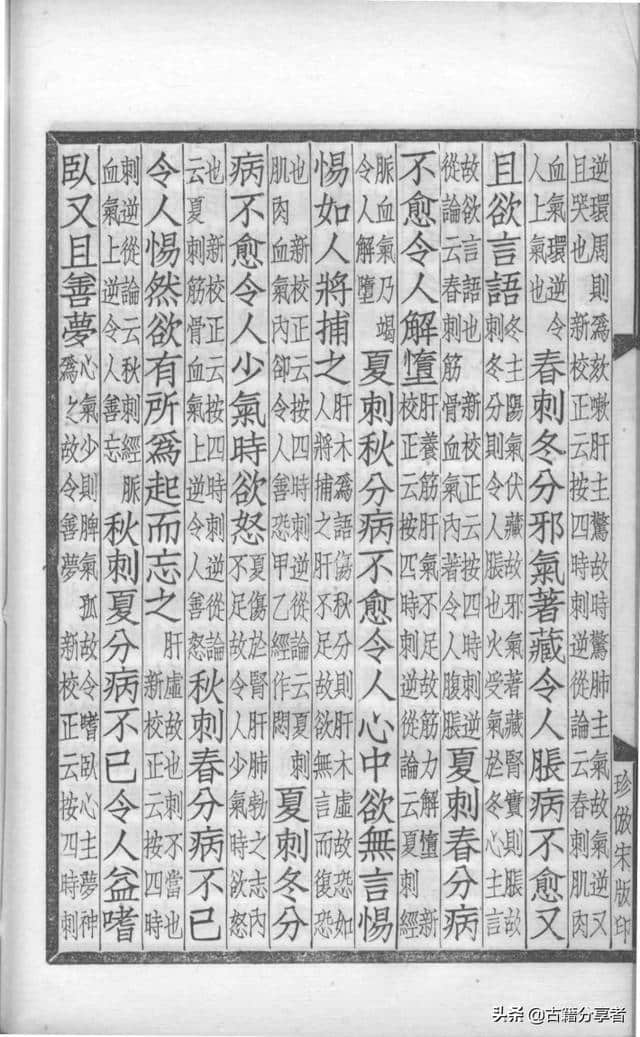 逆環周則爲欬嗽肝主驚故時驚肺主氣故氣逆又
且哭也 新校正云按四時刺逆從論云春刺肌肉
血氣環逆令
人上氣也
春刺冬分邪氣著藏令人脹病不愈又
且欲言語
冬主陽氣伏藏故邪氣著藏腎實則脹故
刺冬分則令人脹也火受氣於冬心主言
故欲言語也 新校正云按四時刺逆
從論云春刺筋骨血氣內著令人腹脹
夏刺春分病
不愈令人解墮
肝養筋肝氣不足故筋力解墮 新
校正云按四時刺逆從論云夏刺經
脈血氣乃竭
令人解墮
夏刺秋分病不愈令人心中欲無言惕
惕如人將捕之
肝木爲語傷秋分則肝木虛故恐如
人將捕之肝不足故欲無言而復恐
也 新校正云按四時刺逆從論云夏刺
肌肉血氣內卻令人善恐甲乙經作悶
夏刺冬分
病不愈令人少氣時欲怒
夏傷於腎肝肺勃之志內
不足故令人少氣時欲怒
也 新校正云按四時刺逆從論
云夏刺筋骨血氣上逆令人善怒
秋刺春分病不已
令人惕然欲有所爲起而忘之
肝虛故也刺不當也
新校正云按四時
刺逆從論云秋刺經脈
血氣上逆令人善忘
秋刺夏分病不已令人益嗜
臥又且善夢
心氣少則脾氣孤故令嗜臥心主夢神
爲之故令善夢 新校正云按四時刺
珍倣宋版印
头条 @古籍分享者